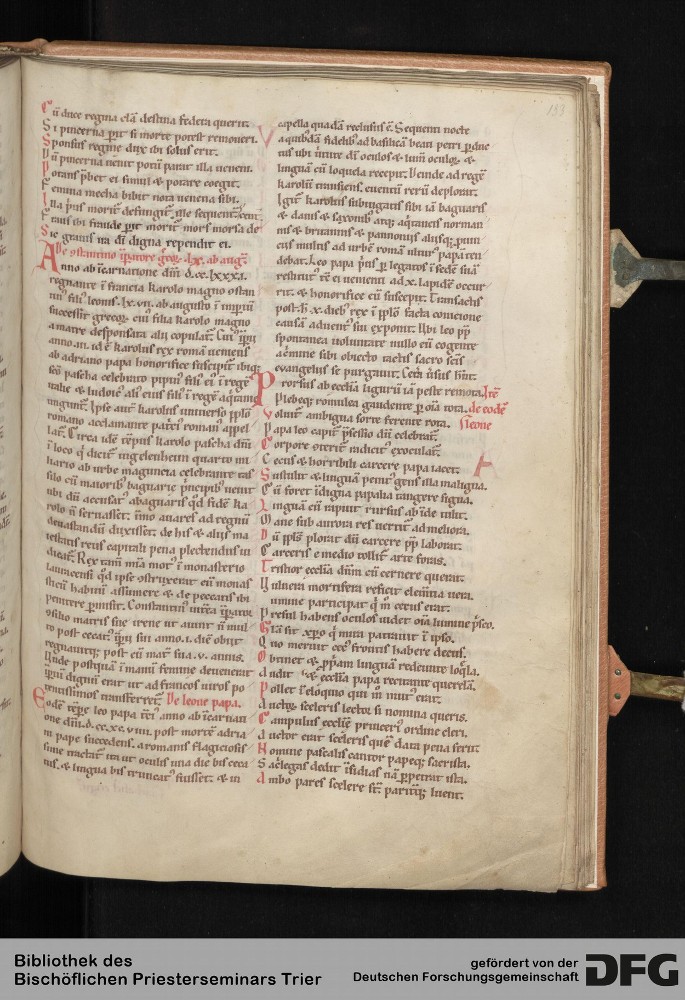 133
Cū duce regina clā destina federa querit.
Si pincerna p̄it si morte potest remoueri.
Sponsus regine dux ibi solus erit.
Dū pincerna uenit potū parat illa ueneni.
Potans p̄bet ei simul & potare coegit.
Femina mecha bibit nota uenena sibi.
Illa p̄us morit̄ defungit̄ ille sequent̄
fraus ibi fraude p̄it morit̄ mors morsa de
Sic gratis ita dī digna rependit ei.
De ꝯstantino īp̄atore grecoꝝ. lxv. ab auḡ.
Anno ab īcarnatione dn̄i. d.cc.lxxxi.
regnante ī francia karolo magno ꝯstan
tin̄ filī leonis. lx.vii. ab augusto ī imperiū
successit grecoꝝ. cui̾ filia karolo magno
a matre desponsata alii copulat̄.
anno. iii. idē karolus rex romā ueniens
ab adriano papa honorifice suscipit̄ ibiq;
scō pascha celebrato pipin̄ fili̾ ei̾ ī regē
italie & ludoic̾ ali̾ ei̾ fili̾ ī regē aq̄tanie
ungunt̄. Ipse aut̄ karolus uniuerso pp̄lo
romano acclamante patrici̾ romanoꝝ appel
lat̄. Circa idē tēp̾ karolo pascha dn̄i
ī loco q̄ dicit̄ ingelenheim quarto mi
liario ab urbe maguncia celebrante tas
silo cū maiorib̾ baguarie p̄ncipib̾ uenit
ubi dn̄i accusat̾ abaguariis q̄d fidē ka
rolo ñ seruasset. immo auares ad regnū
deuastandū duxisset. de his & aliis ma
iestatis reus capitali pena plectendus iu
dicat̄. Rex tam̄ mia mot̾ ī monasterio
lauracensi q̄d ipse ꝯstruxerat eū monas
ticū habitū assumere & de peccatis ibi
penitere p̄misit. Constantin̾ uicēa īp̄ator
ꝯsilio matris sue irene ut aiunt ñ mul
to post cecat̄. īp̄ii sui anno. i. diē obiit
regnauitq; post eū mat̄ sua. v. annis.
Unde postquā ī manū femine deuenerat
īp̄iū dignū erat ut ad francos uiros po
tentissimos transferret̄. De leone papa.
Eodē tēp̄e leo papa tercī anno ab īcarnati
one dn̄i. d.cc.xc.viii. post mortē adria
ni pape succedens. a romanis flagiciosis
sime tractat̄ ita ut oculis una die bis ceca
tus. & lingua bis truncat̾ fuisset. & in
capella quadā reclusus ē. Sequenti nocte
a quibdā fidelib̾ ad basilicā beati petri p̄duc
tus ubi ūtute dī oculos & lumē oculoꝝ. &
linguā cū loquela recepit. Deinde ad regē
karolū transiens. euentū rerū deplorat.
Igit̄ karolus subiugatis sibi iā baguaris
& danis & saxonib̾ atq; aq̄tanis norman
nis & britannis & pannoniis aliisq; p̄uin
ciis multis ad urbē romā ulti̾ papa ten
debat. Leo papa p̄us p̄ legatos ī sedē suā
restitut̾ rē ei uenienti ad .x. lapidē occur
rit. & honorifice eū suscepit. Transactis
post h̄ .x. dieb̾ rex ī pp̄lo facta concione
causā aduent̾ sui exponit. Ubi leo pp̄
spontanea uoluntate nullo eū cogente
a c̄mine sibi obiecto tactis sacro scīs
euangeliis se purgauit. Cet̄a ūsus hn̄t.
Prorsus ab ecclīa ligurū iā peste remota. Itē
Plebeq; romulea gaudente p̄ oīa tota. de eodē
Voluit̄ ambigua sorte ferente rota. Leone
Papa leo capit̄ p̄fessio dū celebrat̄.
Corpore ꝯterit̄ iudicit̄ exoculat̄.
Cecus & horribili carcere papa iacet.
Sustulit & linguā penit̾ gens illa maligna.
Cū foret īdigna papalia tangere signa.
Linguā cū rapiunt rursus ab inde tulit.
Mane sub aurora res uertit̄ ad meliora.
Dū pp̄ls plorat dū carcere pp̄ laborat.
Carceris e medio tollit̄ arte foras.
Tristior ecclīa dūm eū cernere querat.
Vulnera mortifera reficit clemt̄ia uera.
Lumine participat q̄ m̊ cecus erat.
Presul habens oculos uidet oīa lumine p̄sco.
Glā sit xpō q̄ mira patrauit ī ipso.
Quo meruit cec̾ frontis habere decus.
Obtinet & pp̄am linguā redeunte loq̄la.
Audit̄ & ecclīa papa recitante querelā.
Pollet ī eloquio qui m̊ mut̾ erat.
Auctoꝝ sceleris lector si nomina queris.
Campulus ecclīe primiceri̾ ordine cleri.
Auctor erat sceleris quē data pena ferit
Nomine pascalis cantor papeq; sacrista.
Sacͥlegas dedit īsidias nā p̄petrat ista.
Ambo pares scelere st̄ pariterq; luent.
Bibliothek des
Bischöflichen Priesterseminars Trier
gefördert von der
Deutschen Forschungsgemeinschaft
DFG